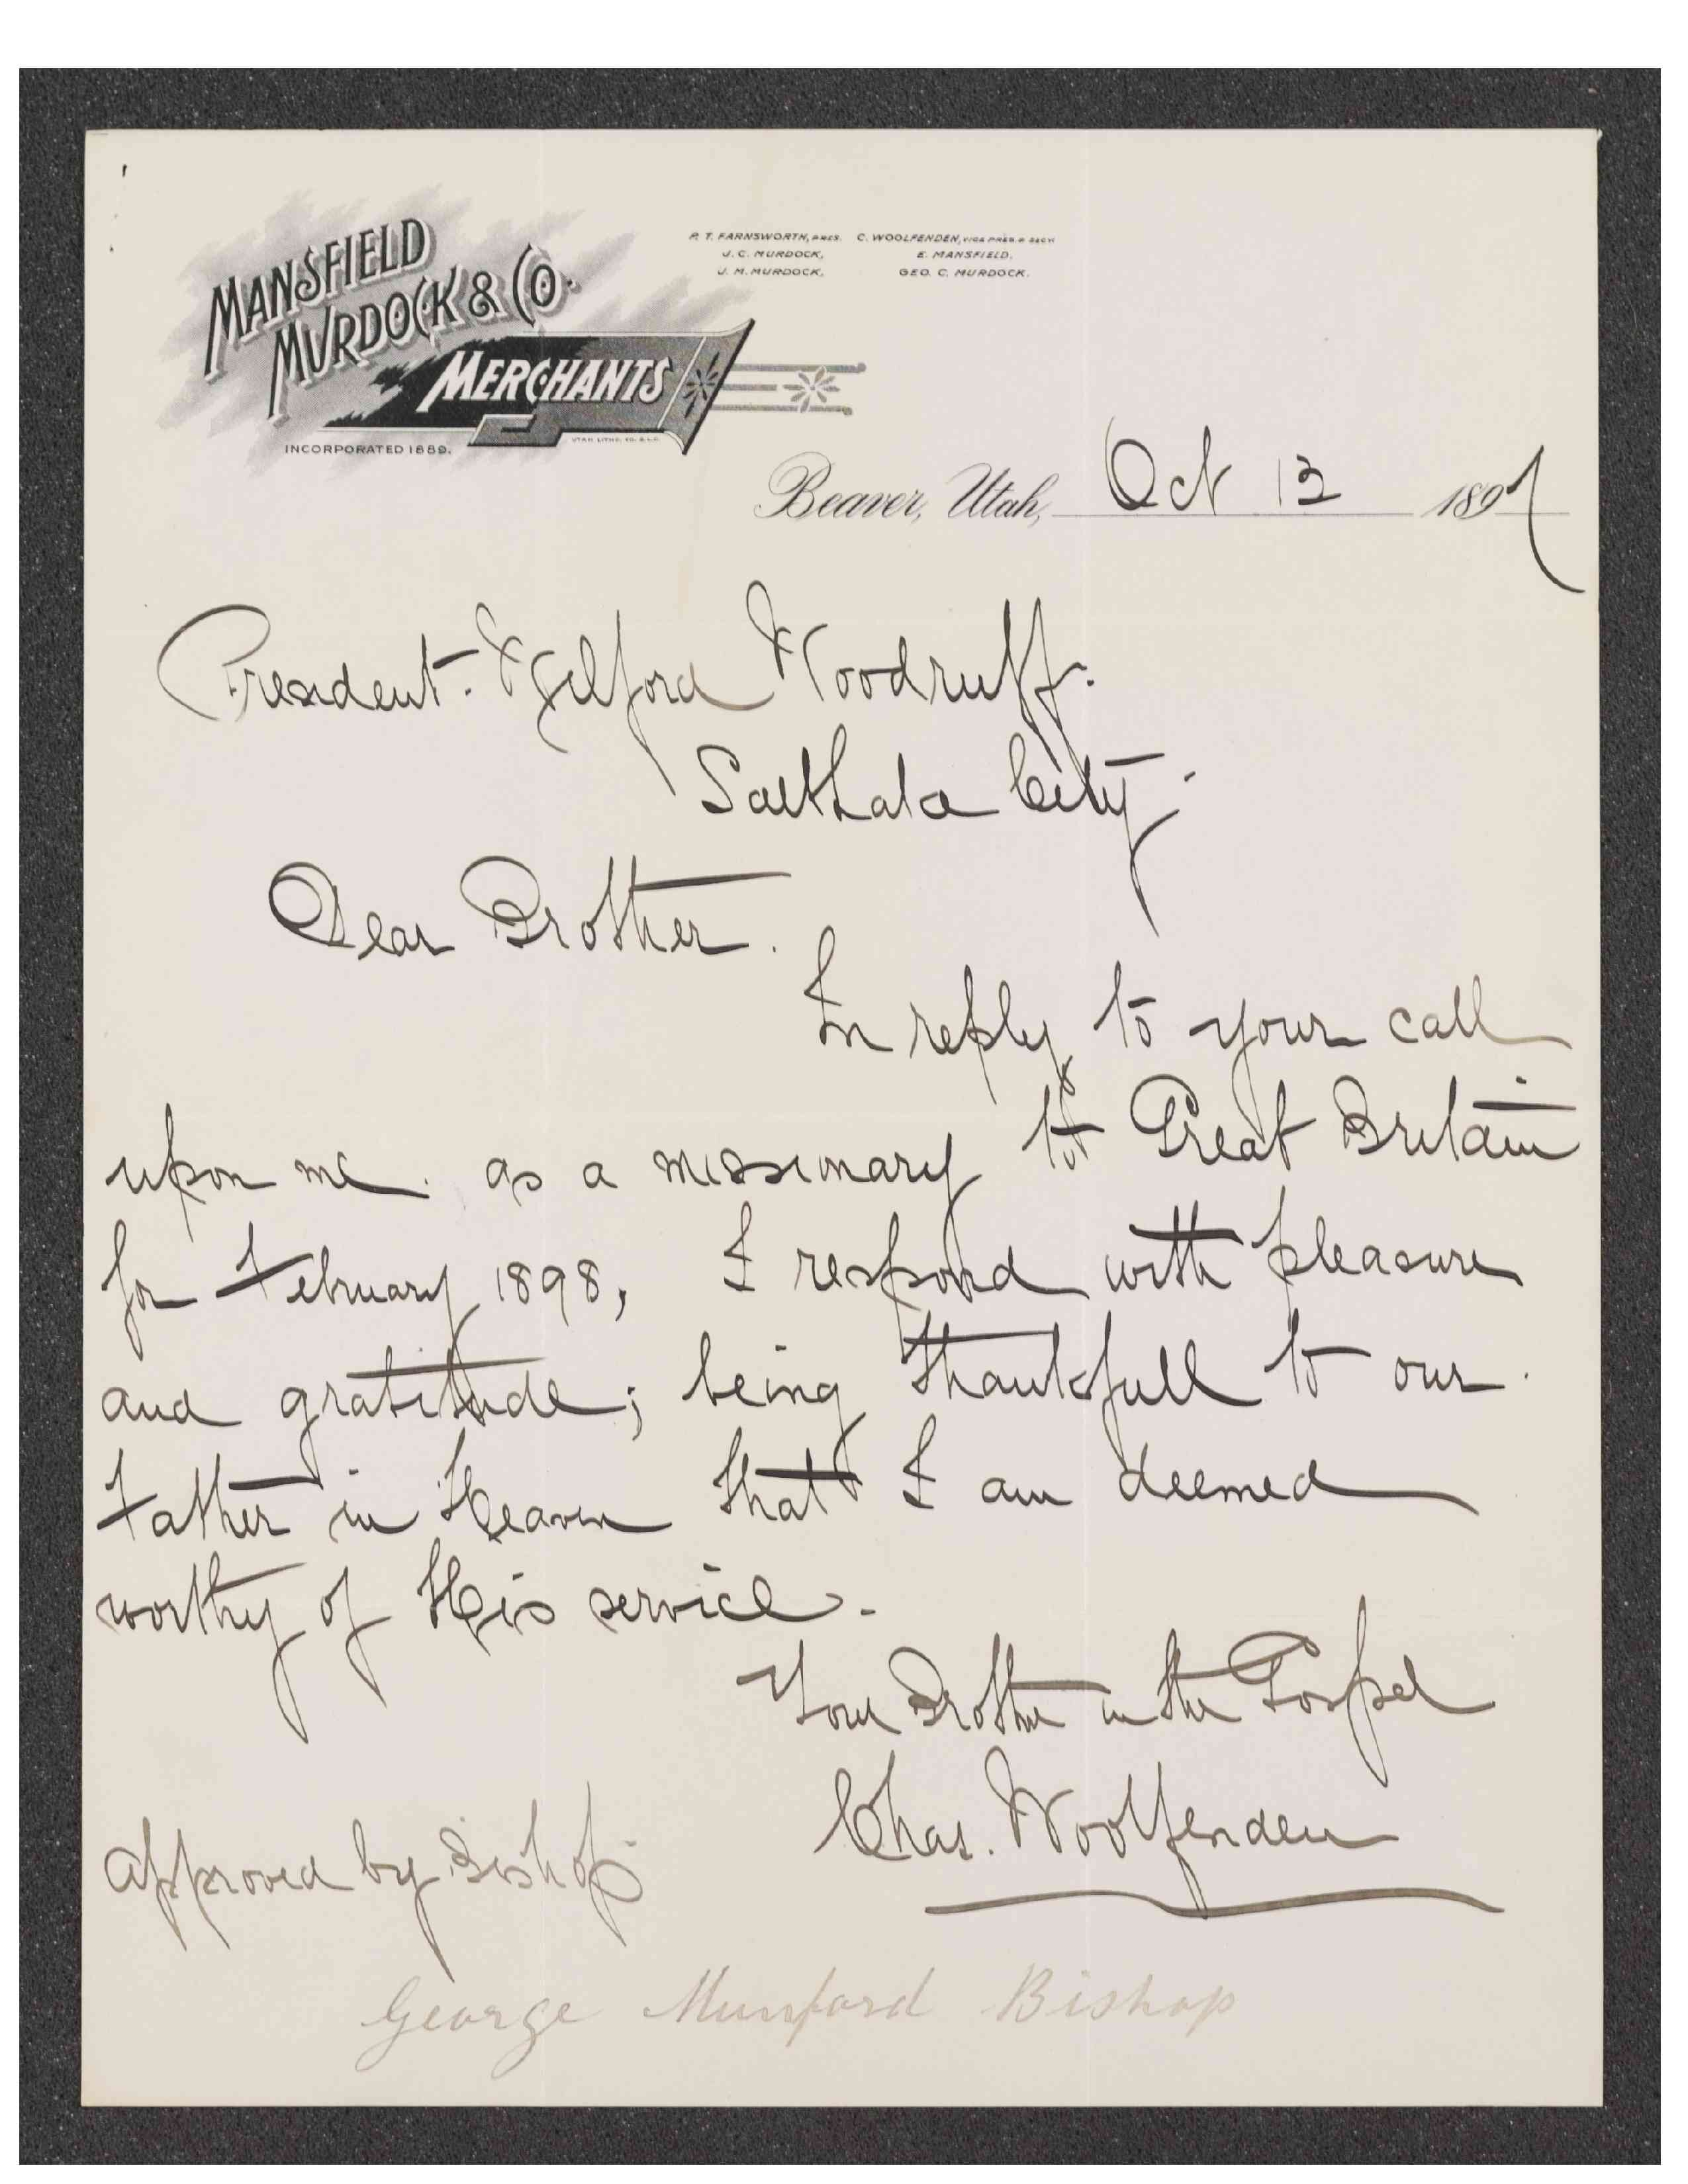 MANSFIELD
MURDOCK & CO.
MERCHANTS
INCORPORATED 1889.
P. T. FARNSWORTH, PRES. C. WOOLFENDEN, VICE PRES. & SECY
J. C. MURDOCK, E. MANSFIELD,
J. M. MURDOCK, GEO. C. MURDOCK.
Beaver, Utah, Oct 12 1897
President. Wilford Woodruff.
Salt Lake City.
Dear Brother.
In reply to your call
upon me. as a missionary to Great Britain
for February 1898, I respond with pleasure
and gratitude; being thankfull to our.
Father in Heaven that I am deemed
worthy of His service.
Your Brother in the Gospel
Chas. Woolfenden
Approved by Bishop
George Munford Bishop